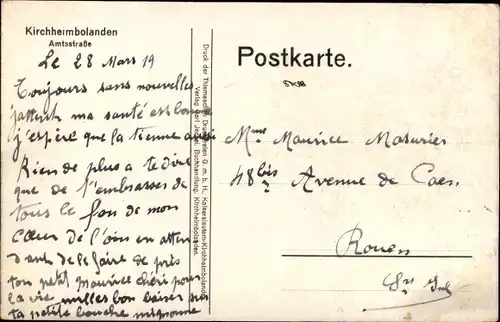 Kirchheimbolanden
Amtsstraße
Le 28 Mars 19
Toujours sans nouvelles
j'attent ma santé est bonne
j'espire que la tienne aussi
Rien de plus a te dire
que de t'embrasser de
tous le fon de mon
cœur de l'oin en atten
dant de le faire de près
ton petit Maurice chéri pour
la vie milles bon baiser sur
ta petite bouche mignonne
Druck der Thiemeschen Druckereien G. m. b. H., Kaiserslautern-Kirchheimbolanden
Verlag der Buchhandlung, Kirchheimbolanden.
Postkarte.
Mme Maurice Masurier
48 bis Avenue de Caen
Rouen
Sre Inf